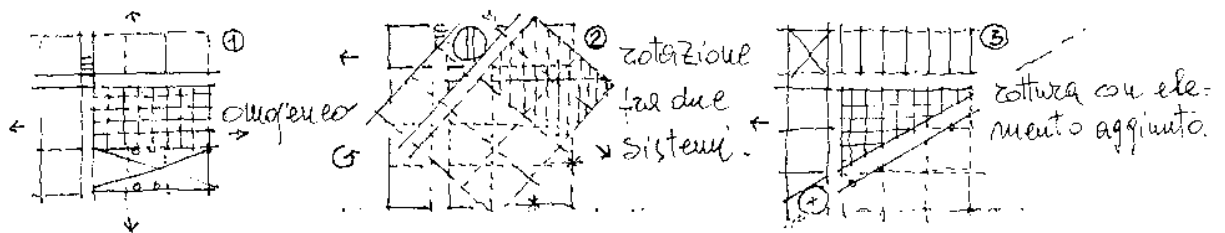 ①
omogeneo
②
rotazione
fra due
sistemi.
③
rottura con ele=
mento aggiunto.
+